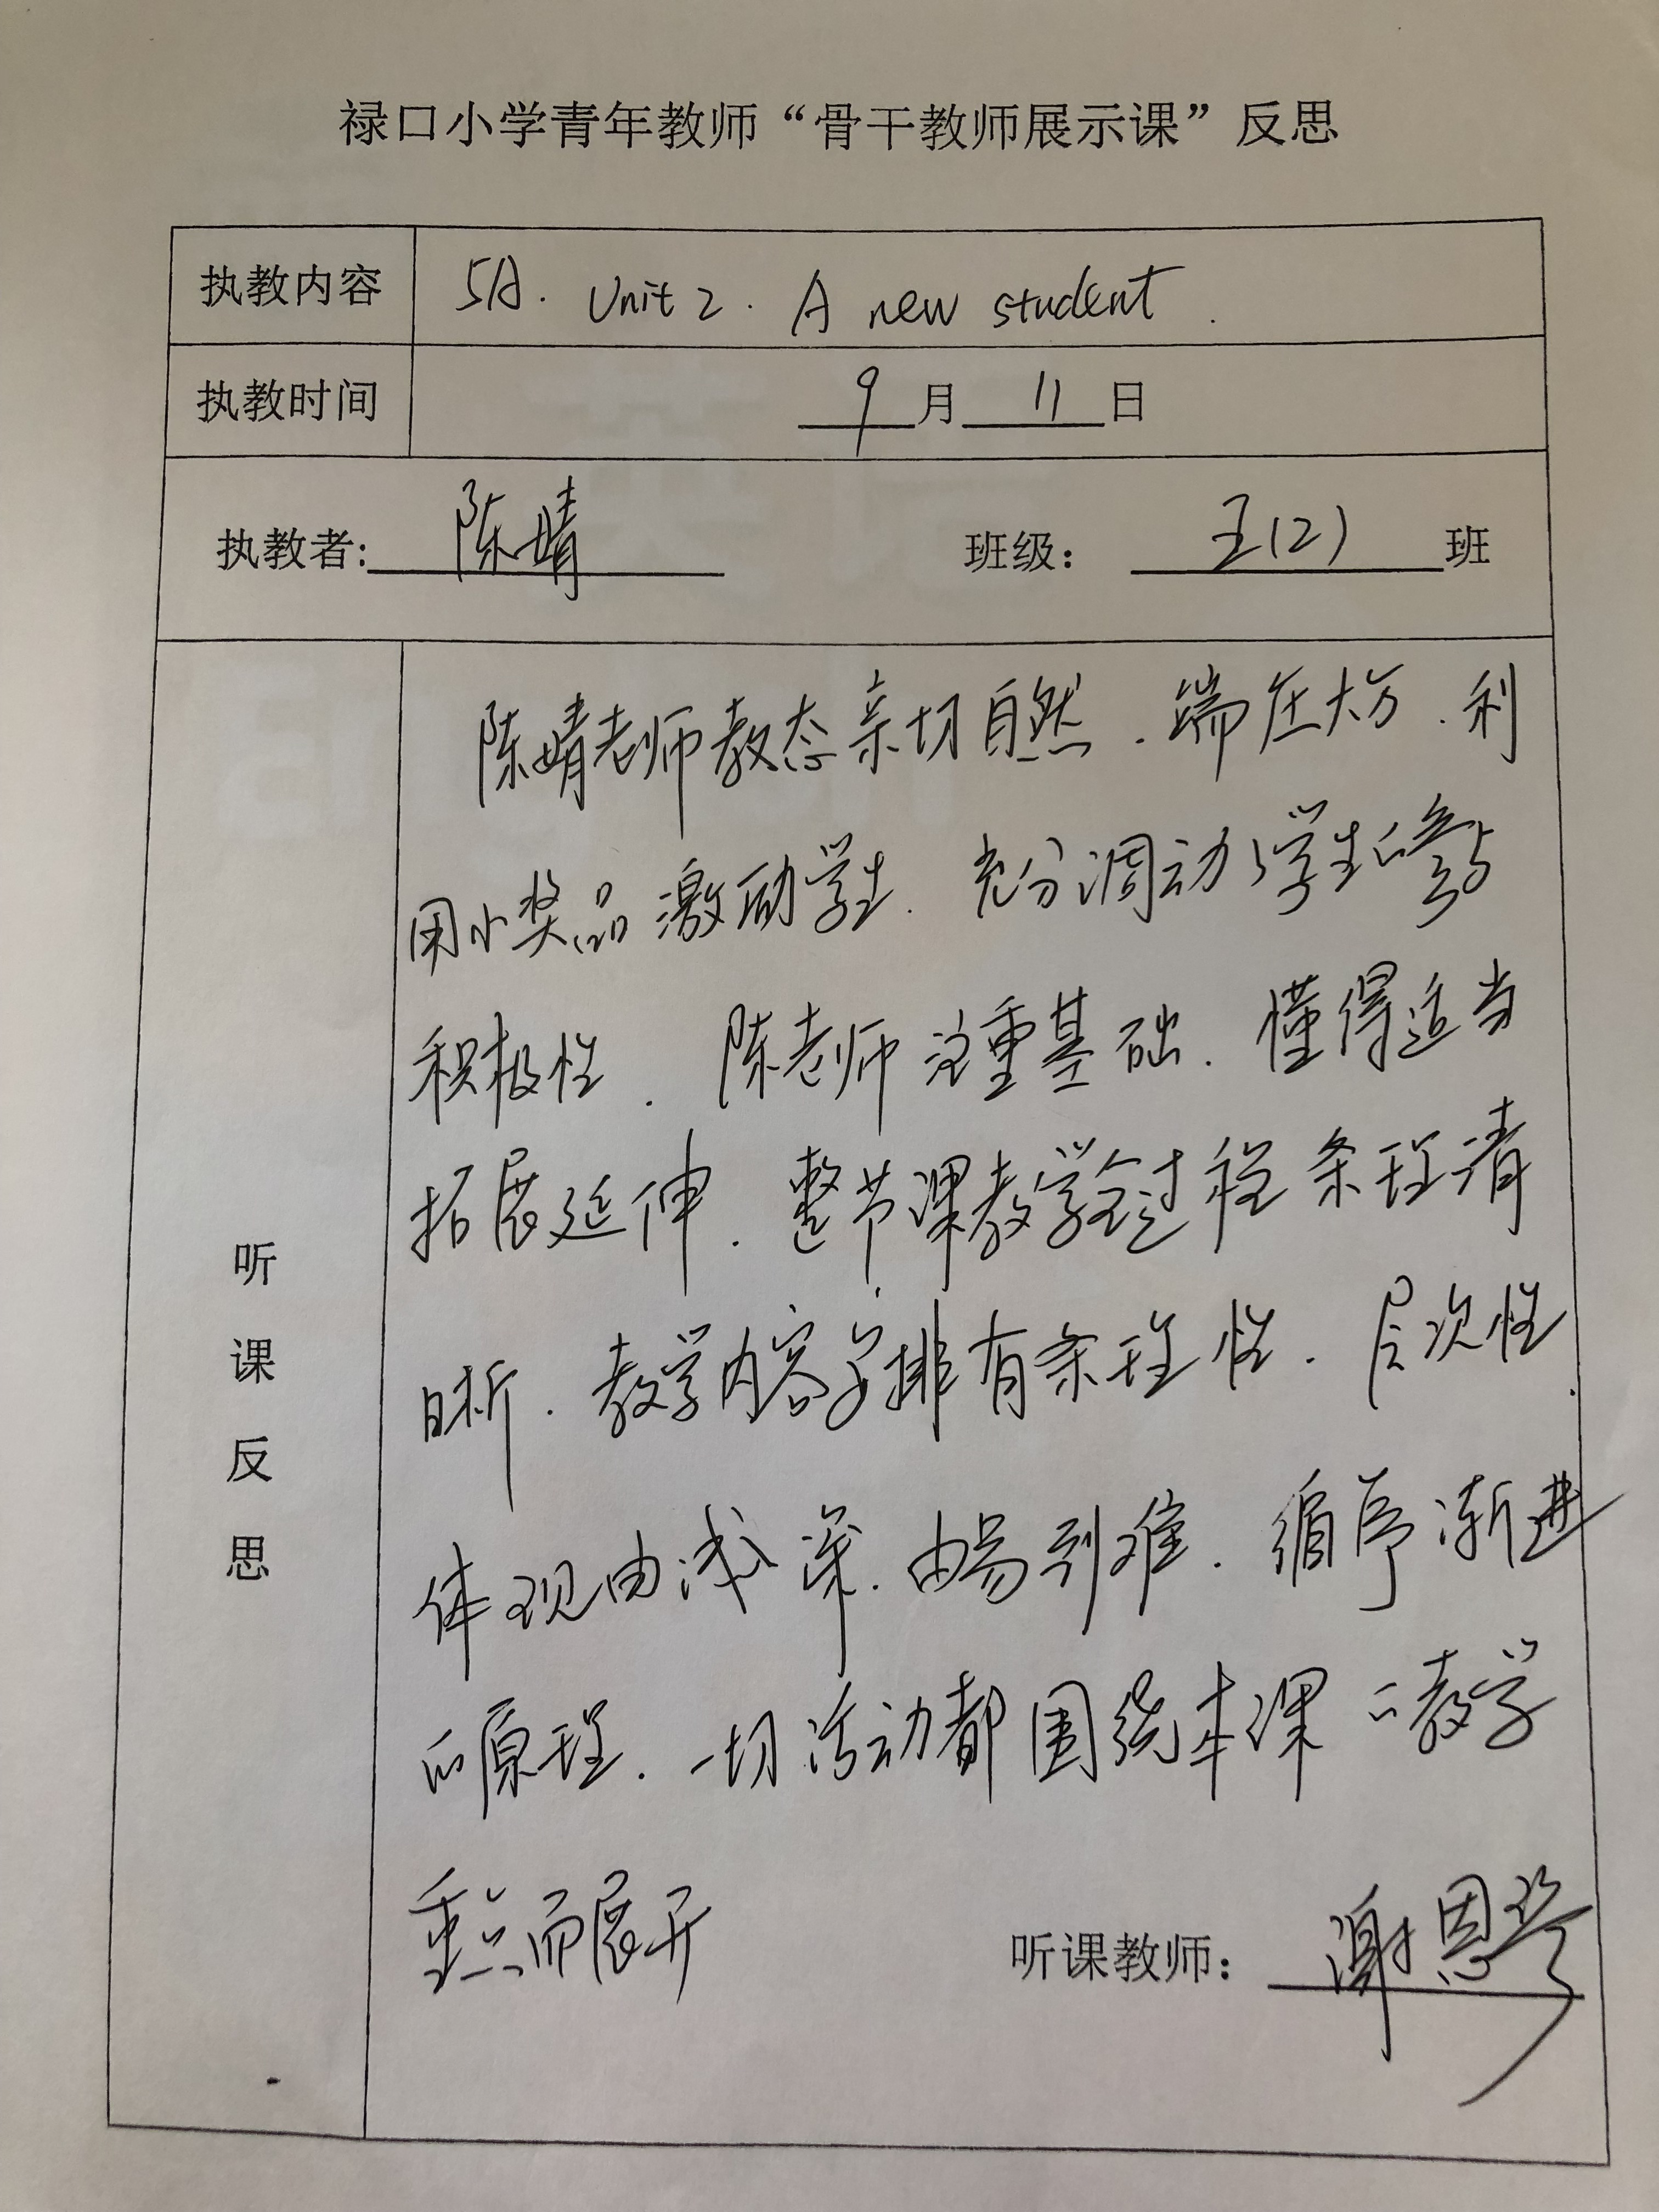 禄口小学青年教师“骨干教师展示课”反思
执教内容 5A. Unit 2. A new student.
执教时间 9月11日
执教者: 陈婧 班级: 五(2)班
陈婧老师教态亲切自然.端庄大方.利
用小奖品激励学生.充分调动了学生的参与
积极性.陈老师注重基础.懂得适当
拓展延伸.整节课教学全过程条理清
晰.教学内容安排有条理性.层次性.
体现由浅入深.由易到难.循序渐进
的原理.一切活动都围绕本课的教学
重点而展开
听课反思
听课教师: 谢恩